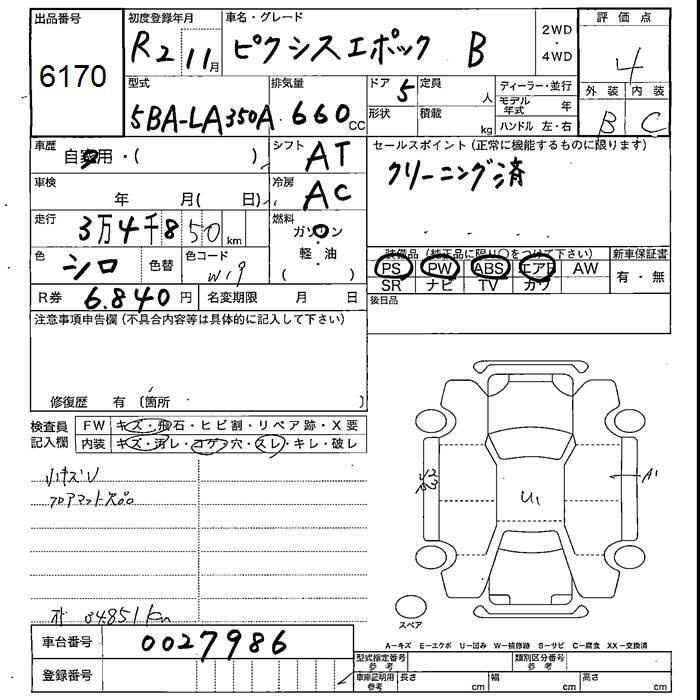 出品番号 初度登録年月 車名・グレード 評価点
6170 R2 11月 ピクシスエポック B 2WD・4WD 4
型式 排気量 ドア 定員 ディーラー・並行 外装 内装
5BA-LA350A 660cc 5 人 モデル年式 年 B C
形状 積載 kg ハンドル 左・右
車歴 シフト セールスポイント(正常に機能するものに限ります)
自家用・( ) AT クリーニング済
車検 冷房
年 月( 日) AC
走行 燃料
3万4千850km ガソリン・軽油( )
色 色替 色コード 装備品(純正品に限り○をつけて下さい) 新車保証書
シロ W19 PS PW ABS エアB AW 有・無
SR ナビ TV カワ
R券 6.840円 名変期限 月 日 後日品
注意事項申告欄(不具合内容等は具体的に記入して下さい)
修復歴 有(箇所 )
検査員記入欄 FW キズ・飛石・ヒビ割・リペア跡・X要
内装 キズ・汚レ・コゲ穴・スレ・キレ・破レ
小キズU
フロアマット欠品
A1
U1
スペア
04851km
A-キズ E-エクボ U-凹み W-補修跡 S-サビ C-腐食 XX-交換済
車台番号 0027986
型式指定番号参考 類別区分番号参考
登録番号 車庫証明用参考 長さ cm 幅 cm 高さ cm